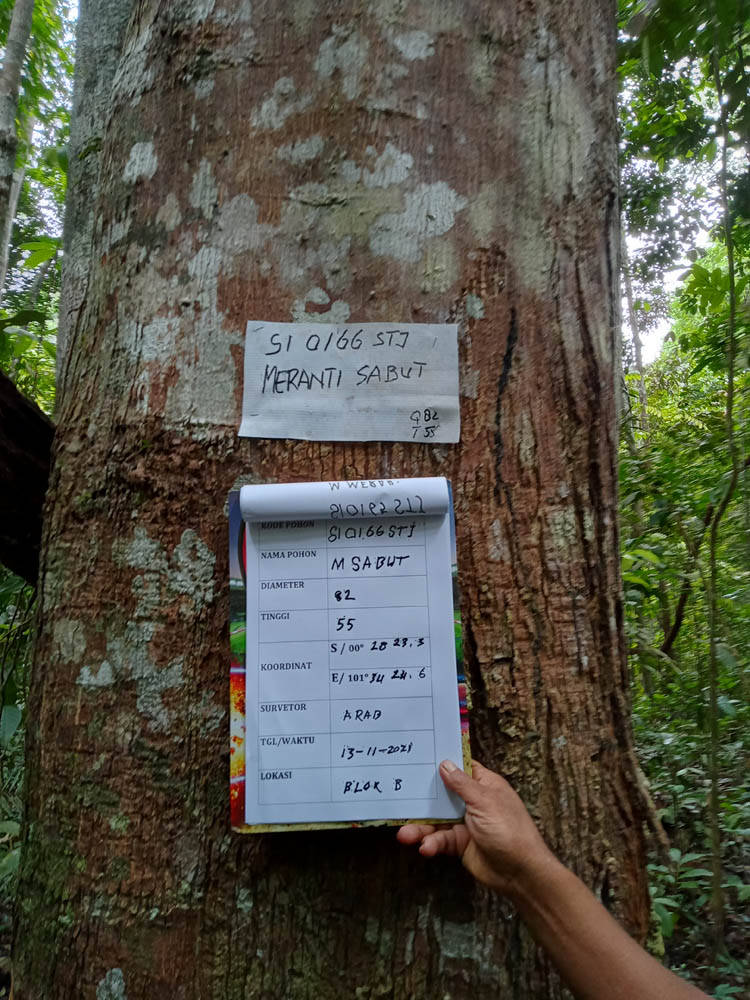 SI 0166 STJ
MERANTI SABUT
Q 82
T 55
KODE POHON SI 0166 STJ
NAMA POHON M SABUT
DIAMETER 82
TINGGI 55
KOORDINAT S / 00° 28 23,3
E/ 101° 34 24,6
SURVETOR ARAB
TGL/WAKTU 13-11-2021
LOKASI BLOK B